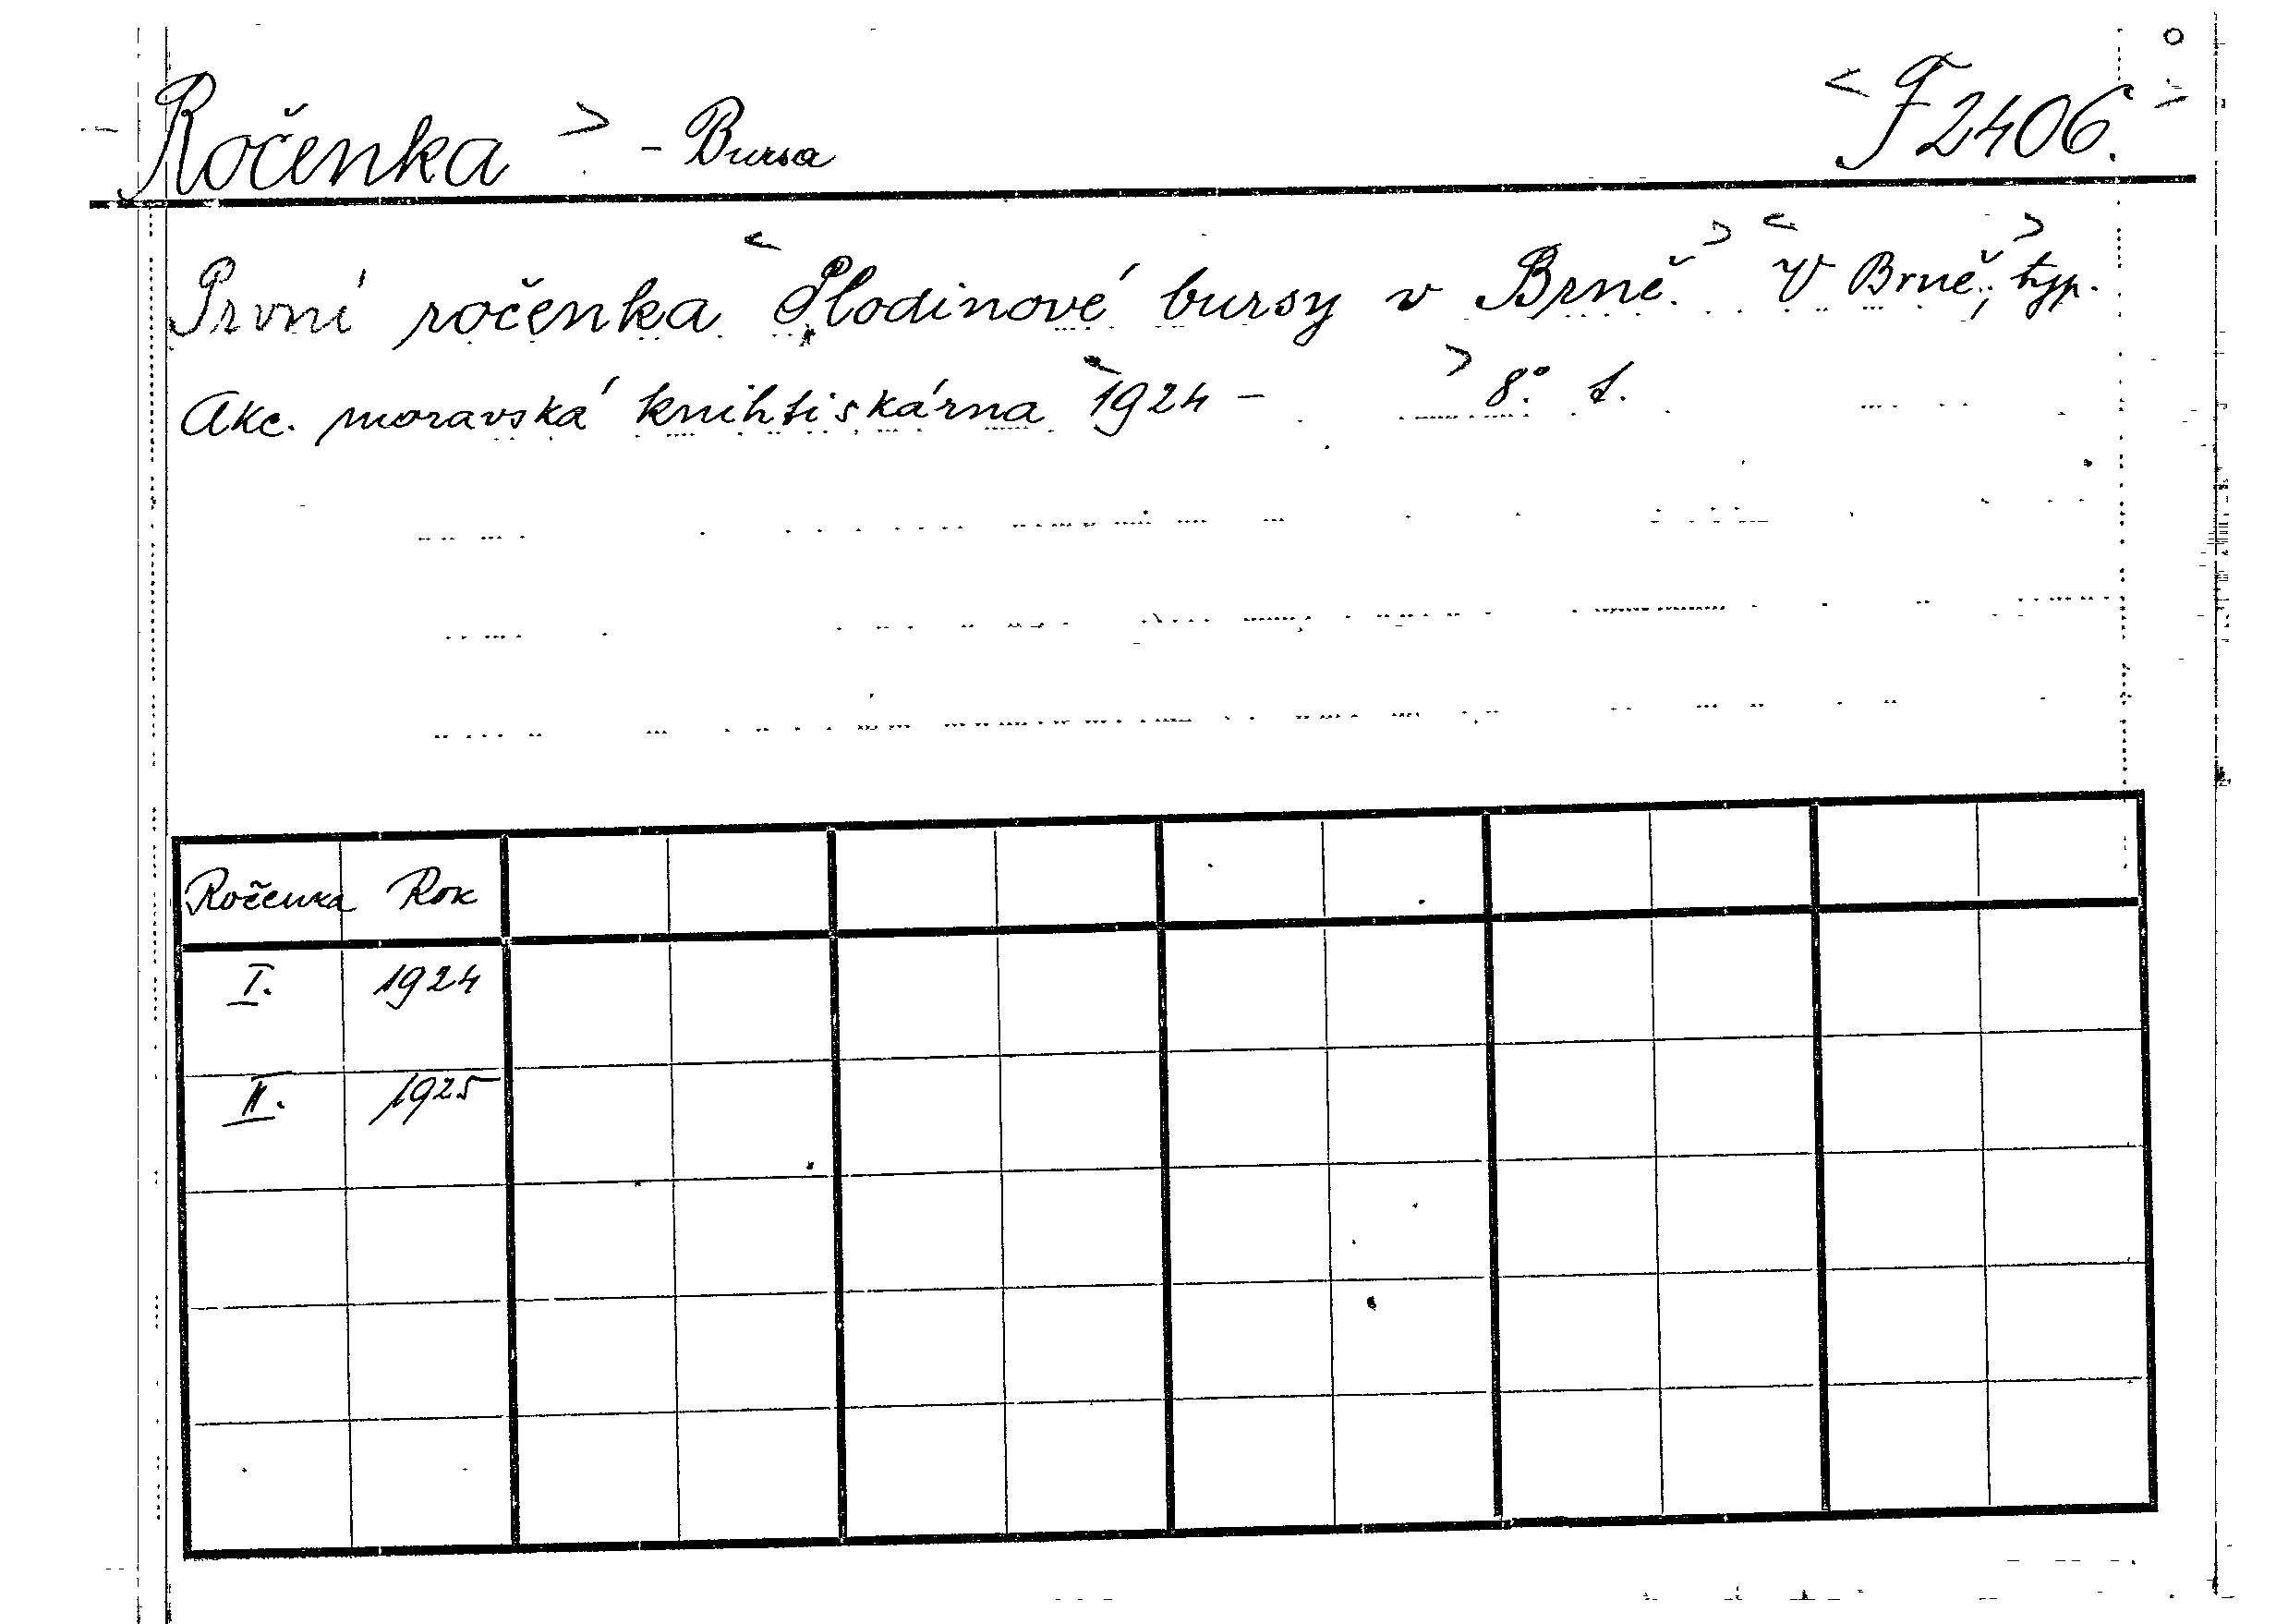 Ročenka > - Bursa < F 2406.
První ročenka < Plodinové bursy v Brně. > < V Brně, > typ.
Akc. moravská knihtiskárna < 1924 - > 8°.
Ročenka Rok
I. 1924
II. 1925